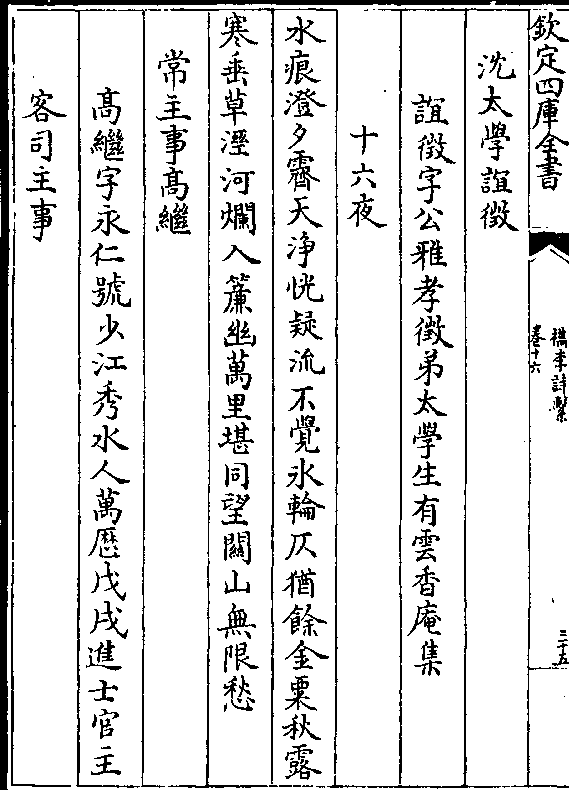 欽定四庫全書
檇李詩繫
卷十六
三十五
沈太學誼徴
誼徴字公雅孝徴弟太學生有雲香庵集
十六夜
水痕澄夕霽天浄恍疑流不覺氷輪仄猶餘金粟秋露
寒垂草溼河爛入簾幽萬里堪同望闗山無限愁
常主事髙繼
髙繼字永仁號少江秀水人萬厯戊戌進士官主
客司主事